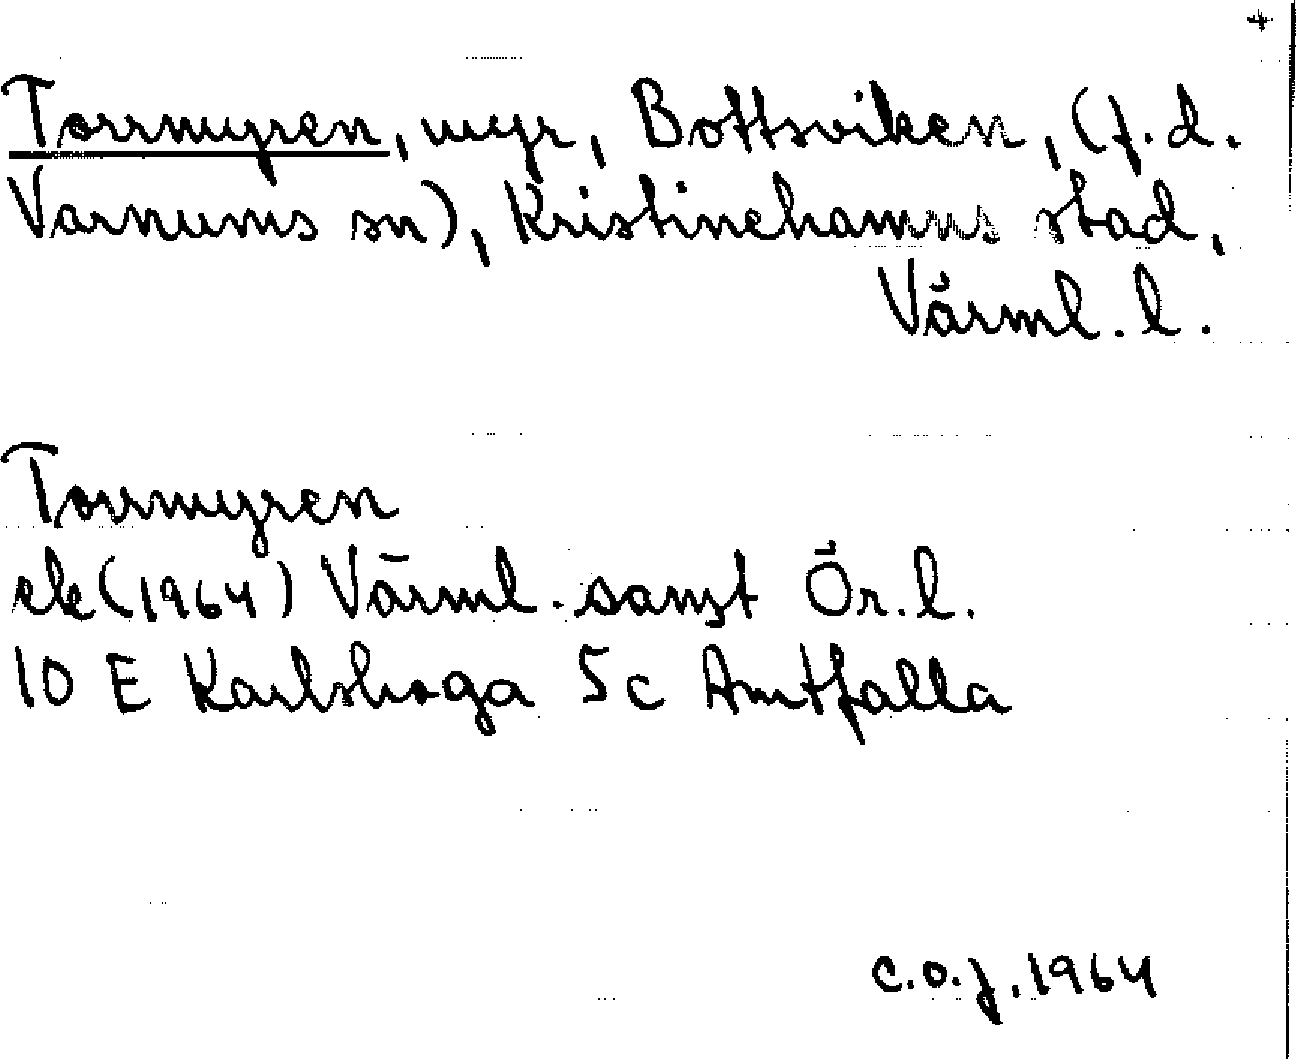 +
Torrmyren, myr, Bottsviken, (f.d.
Varnums sn), Kristinehamns stad,
Värml. l.
Torrmyren
ek (1964) Värml. samt Ör. l.
10 E Karlskoga 5c Amtfalla
C.O.J. 1964